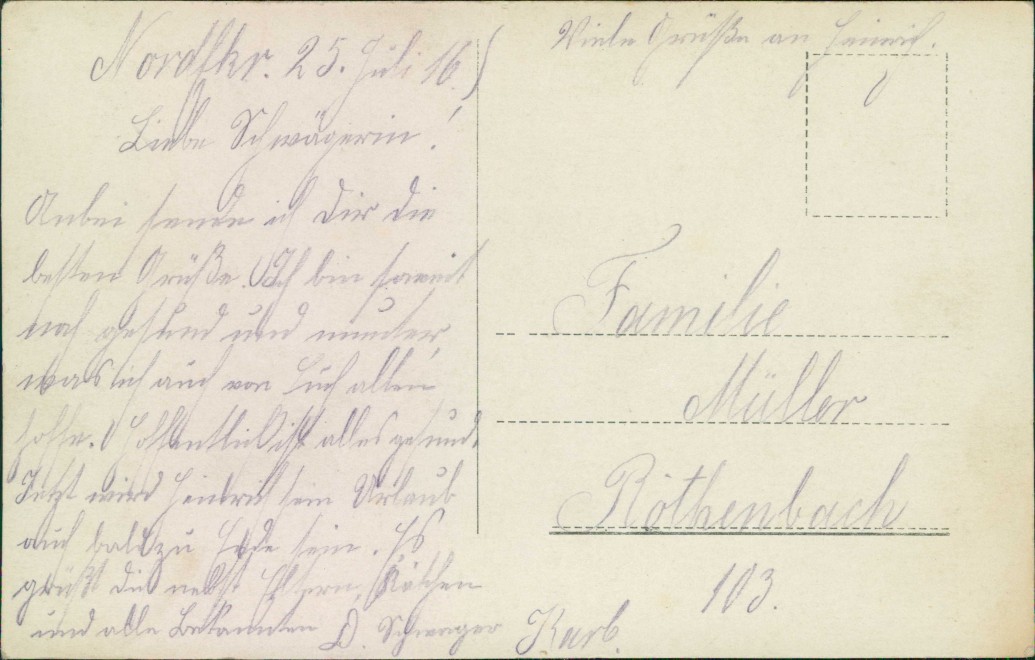 Nordfkr. 25. Juli 16.)
Liebe Schwägerin!
Anbei sende ich Dir die
besten Grüße. Ich bin soweit
noch gesund und munter,
was ich auch von Euch allen
hoffe. Hoffentlich ist alles gesund.
Jetzt wird Heinrich sein Urlaub
auch bald zu Ende sein. Es
grüßt Dich nebst Eltern,
und alle Bekannten D. Schwager
Karb.
Viele Grüße an Heinrich.
Familie
Müller
Röthenbach
103.